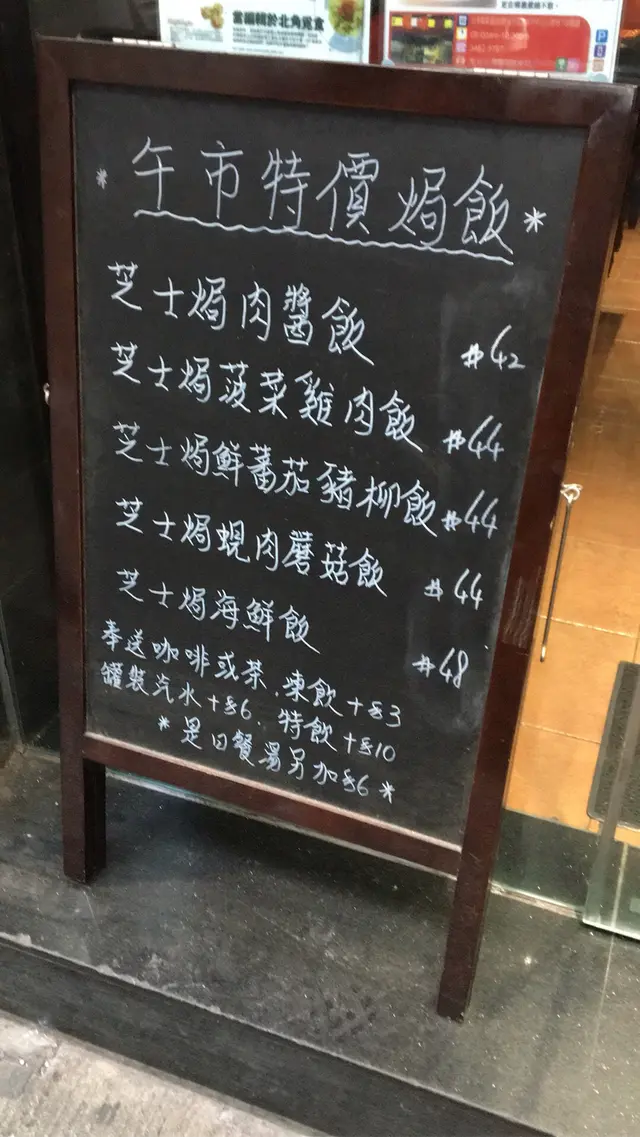 當編輯於北角覓食
* 午市特價焗飯 *
芝士焗肉醬飯 #42
芝士焗菠菜雞肉飯 #44
芝士焗鮮蕃茄豬柳飯 #44
芝士焗蜆肉蘑菇飯 #44
芝士焗海鮮飯 #48
奉送咖啡或茶.凍飲+$3
罐裝汽水+$6.特飲+$10
*是日餐湯另加$6*